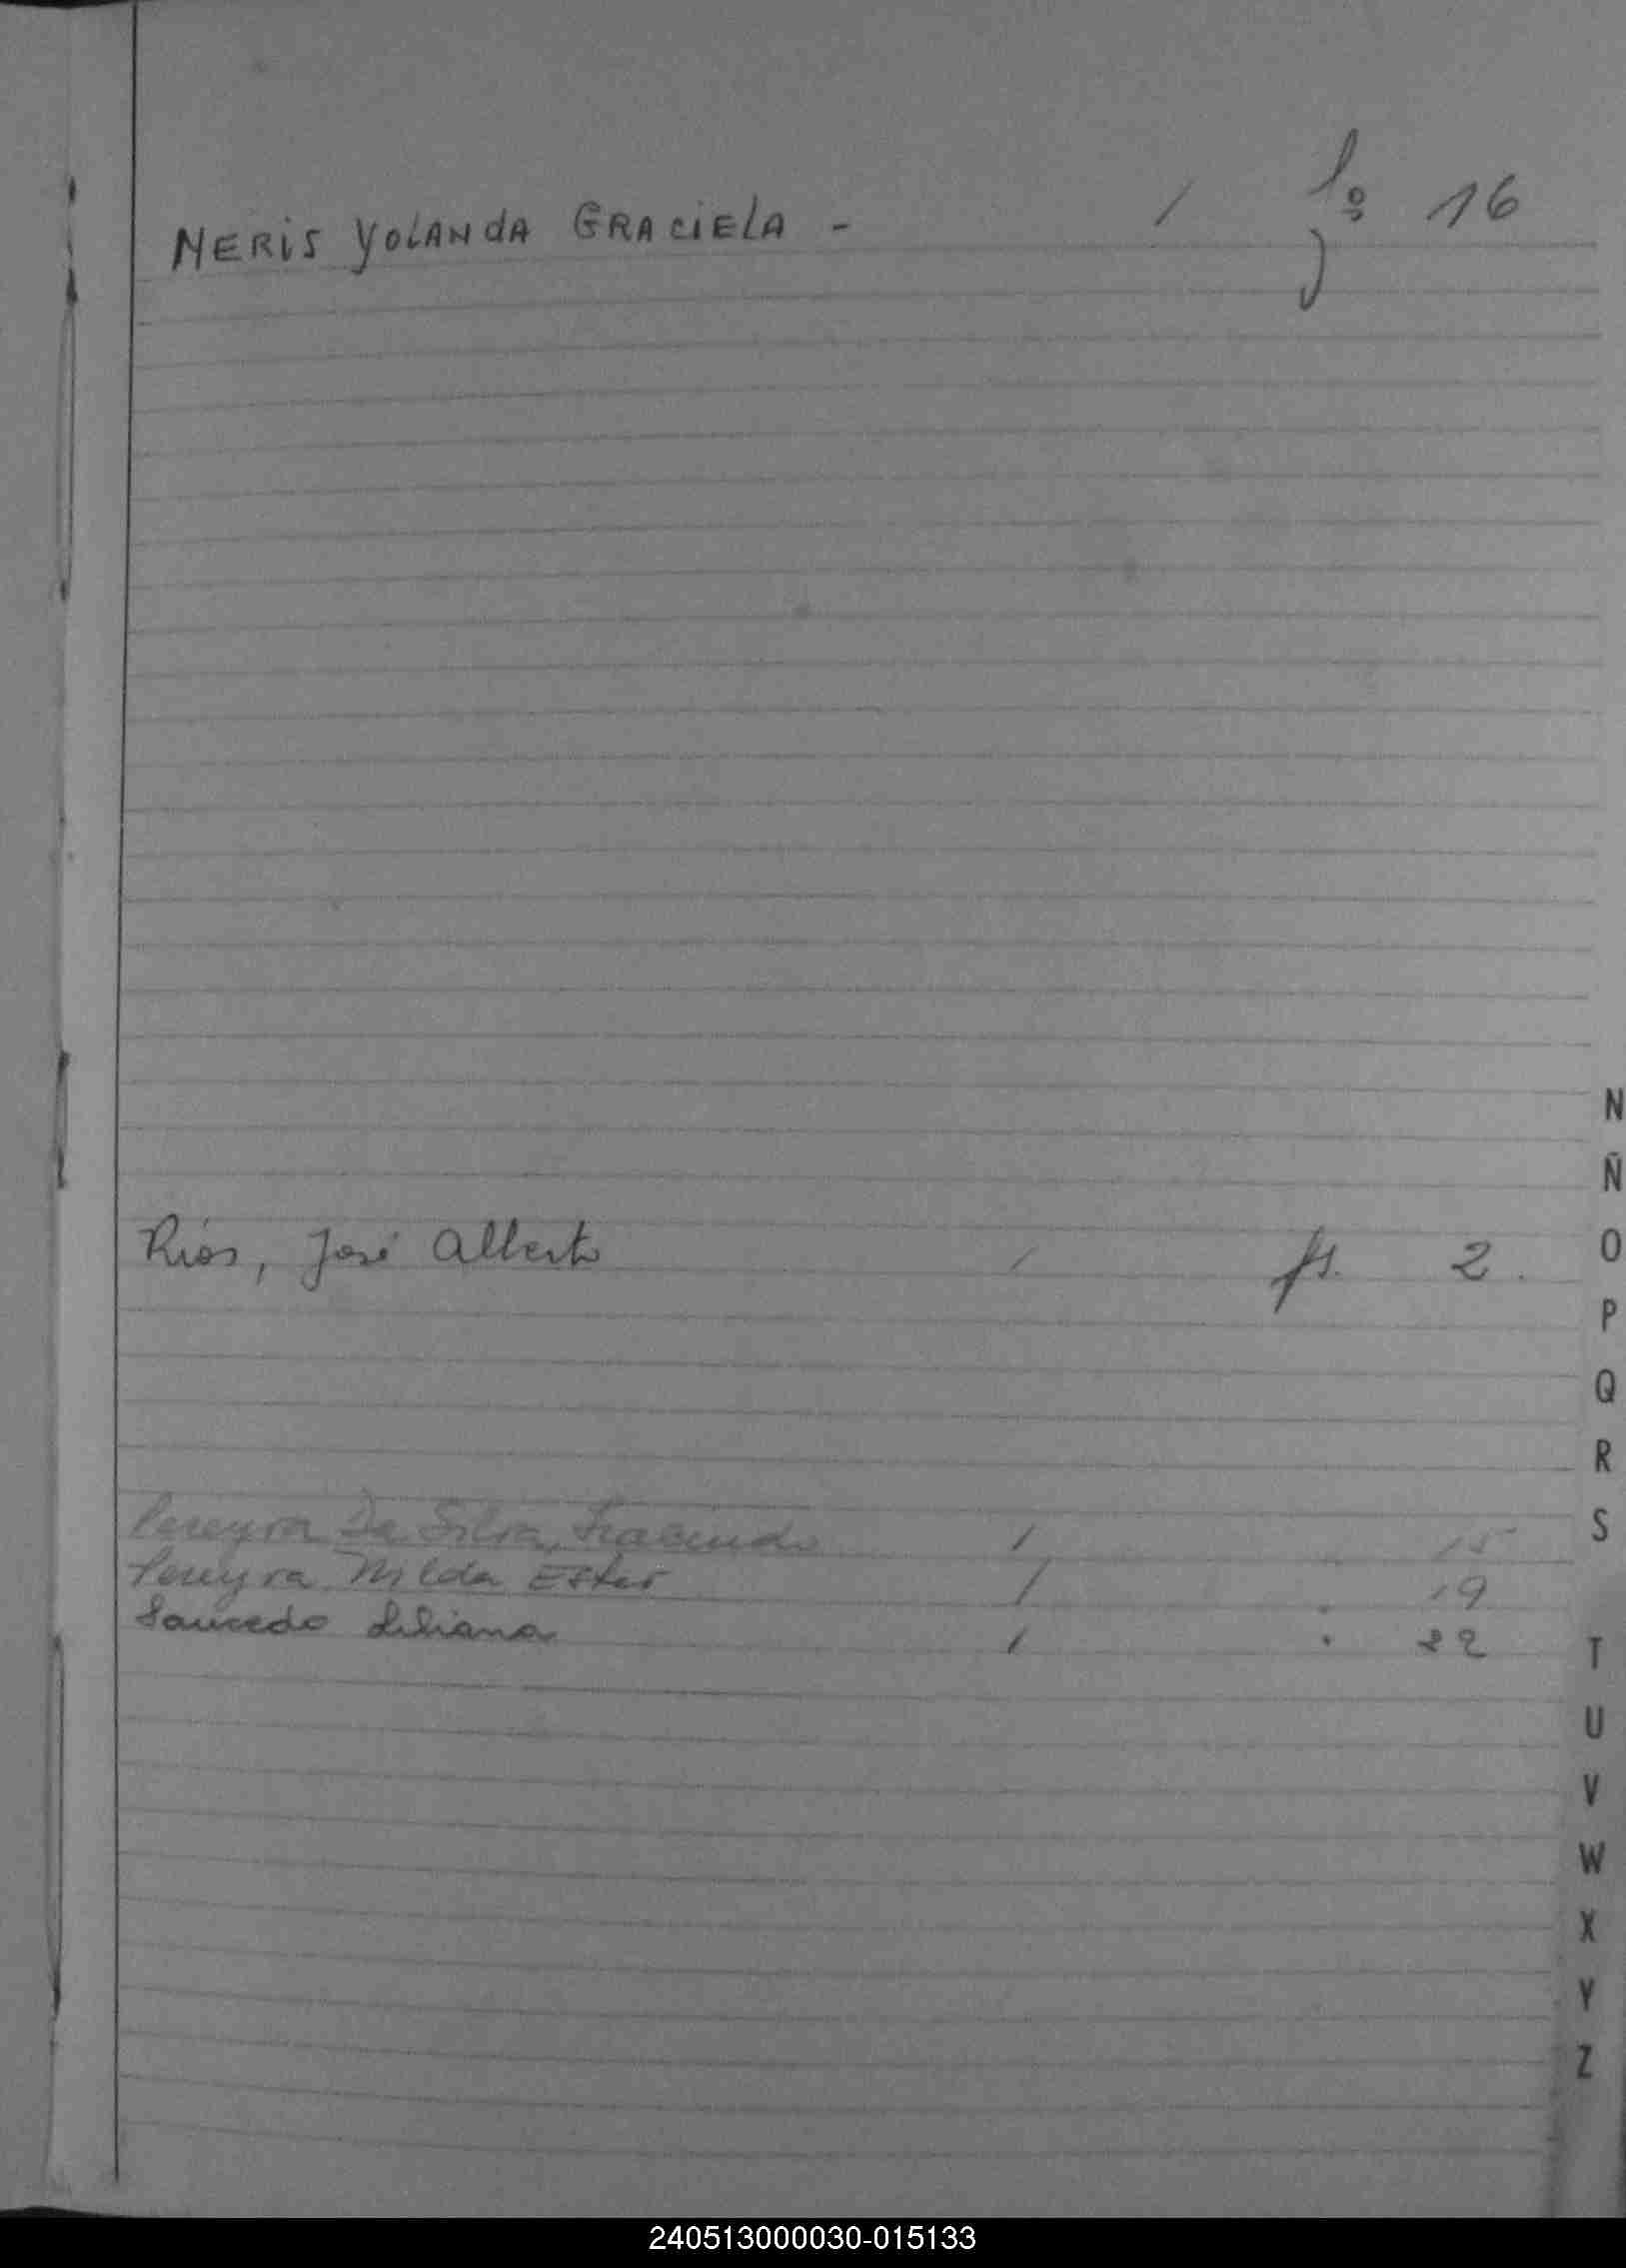 NERIS YOLANDA GRACIELA - / fº 16
Rios, José Alberto / fs. 2.
Pereyra Da Silva, 1 15
Pereyra Nilda Ester 1 . 19
Saucedo Liliana 1 . 22
N
Ñ
O
P
Q
R
S
T
U
V
W
X
Y
Z
240513000030-015133